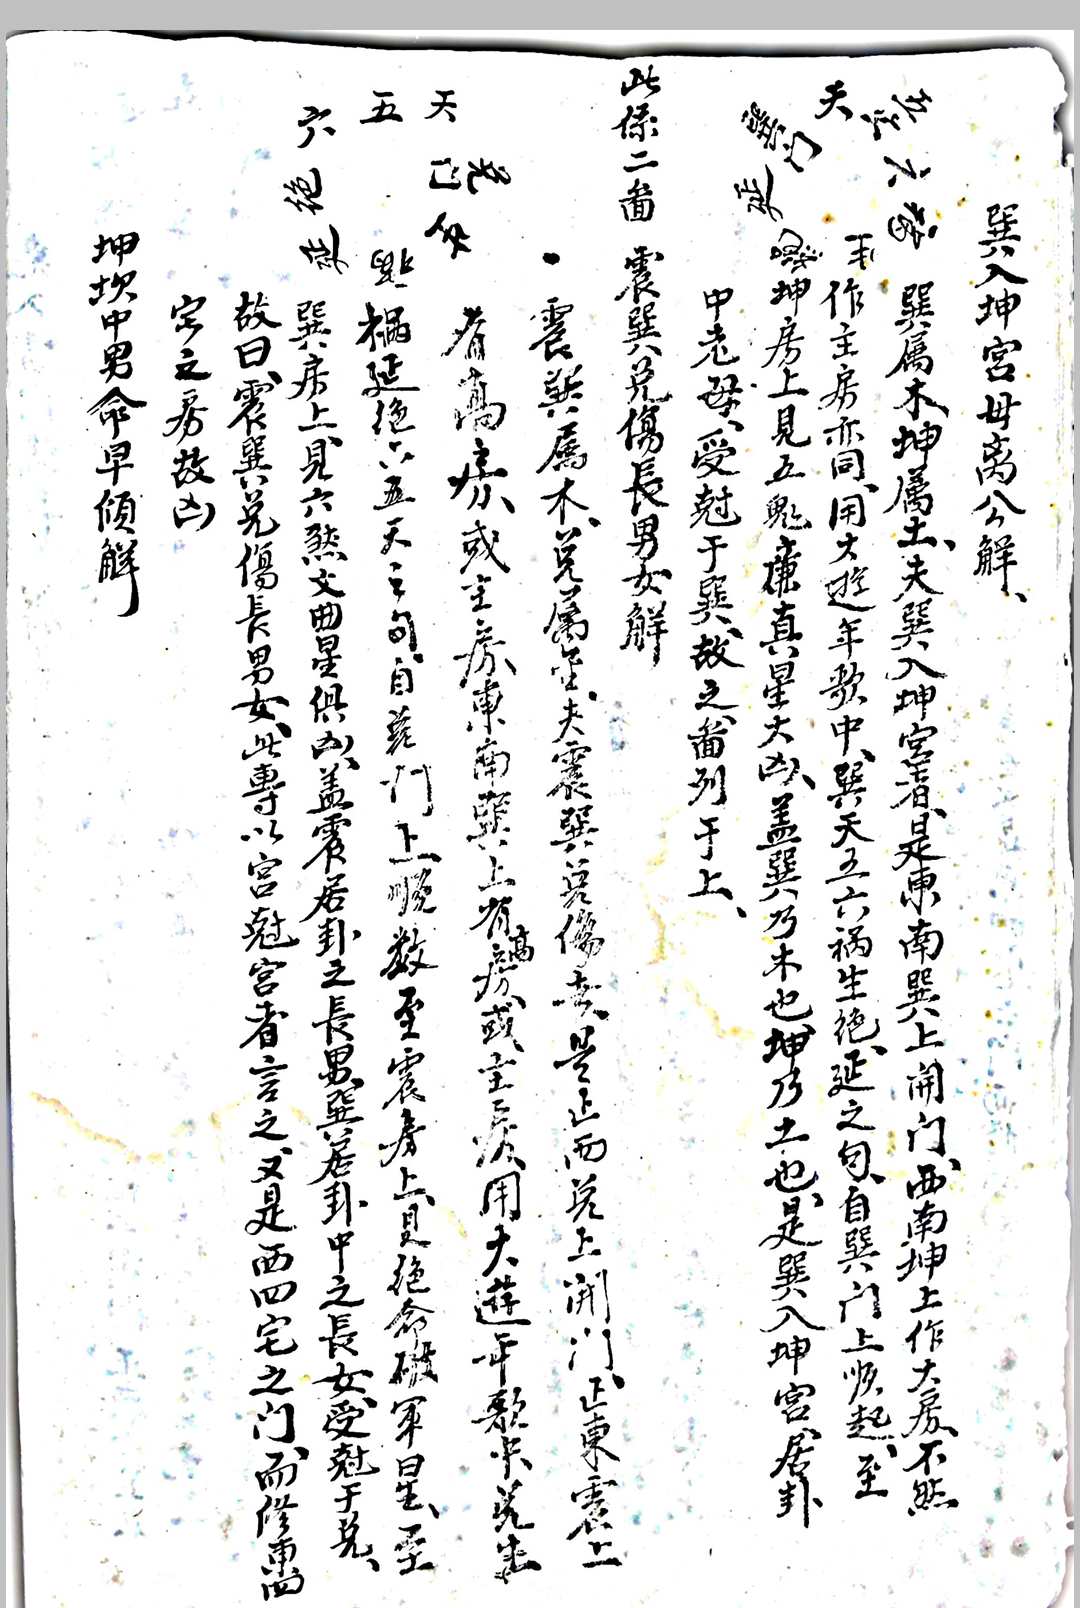 巽入坤宮母离公解、
巽属木、坤属土、夫巽入坤宮者、是東南巽上開门、西南坤上作大房、不然
作主房亦同、用大遊年歌中、巽天五六祸生绝延之句、自巽门上順起、至
坤房上見五鬼廉真星大凶、盖巽乃木也、坤乃土也、是巽入坤宮、居卦
中老母、受尅于巽、故之啚列于上、
此係二啚
震巽兑傷長男女解
震巽属木、兑属金、夫震巽兑傷者、是正西兑上開门、正東震上
有高房、或主房、東南巽上有高房、或主房、用大遊年歌中兑生
禍延绝六五天之句、自兑门上順数至震房上、見绝命破軍星、至
巽房上、見六煞文曲星俱凶、盖震居卦之長男、巽居卦中之長女、受尅于兑、
故曰、震巽兑傷長男女、此專以宮尅宮者言之、又是西四宅之门、而修東四
宅之房故凶
坤坎中男命早傾解
天
五
六
绝
兑门
生
天
六
巽门
延